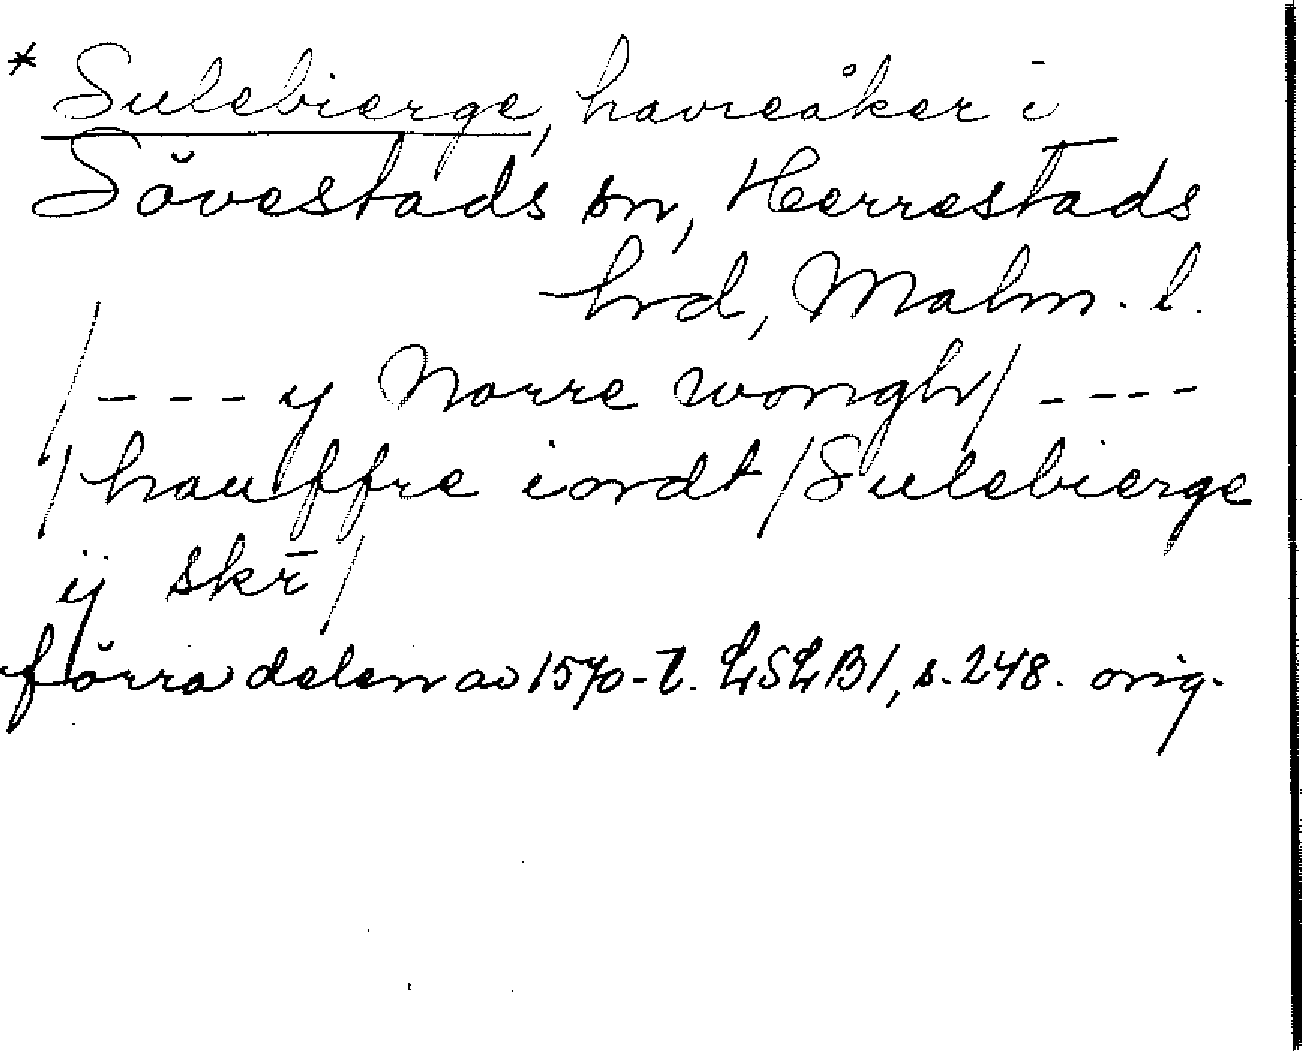 * Sulebierge, havreåker i
Sövestads sn, Herrestads
hrd, Malm. l.
/ - - - y Norre wongh / - - - -
/ hauffre iordt / Sulebierge
ij skr̄ /
förra delen av 1570-t. LSLB1, s. 248. orig.